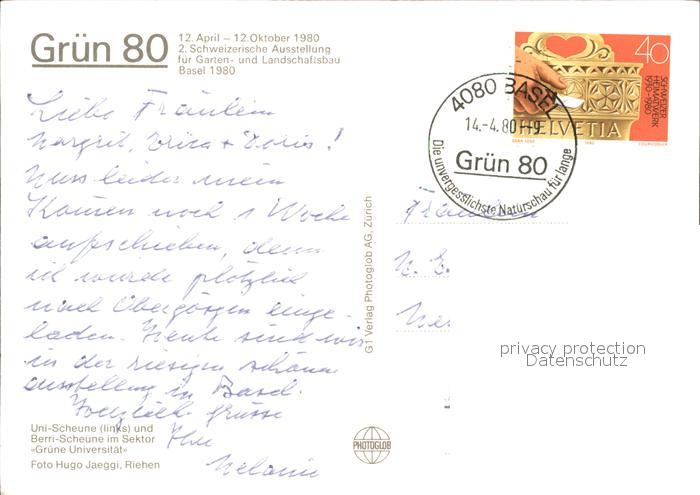 Grün 80
12. April – 12. Oktober 1980
2. Schweizerische Ausstellung
für Garten- und Landschaftsbau
Basel 1980
Liebe Fräulein
Margrit, Erica + Doris!
Muss leider mein
Kommen noch 1 Woche
aufschieben, denn
ich wurde plötzlich
nach Obergösgen einge-
laden. Heute sind wir
in der riesigen schönen
Ausstellung in Basel.
Herzliche Grüsse
Ihre
Melanie
Uni-Scheune (links) und
Berri-Scheune im Sektor
«Grüne Universität»
Foto Hugo Jaeggi, Riehen
G1 Verlag Photoglob AG, Zürich
PHOTOGLOB
4080 BASEL
14.-4.80 H-9
Grün 80
Die unvergesslichste Naturschau für lange
40
SCHWEIZER
HEIMATWERK
1930-1980
HELVETIA
1980
COURVOISIER
Fräulein
privacy protection
Datenschutz